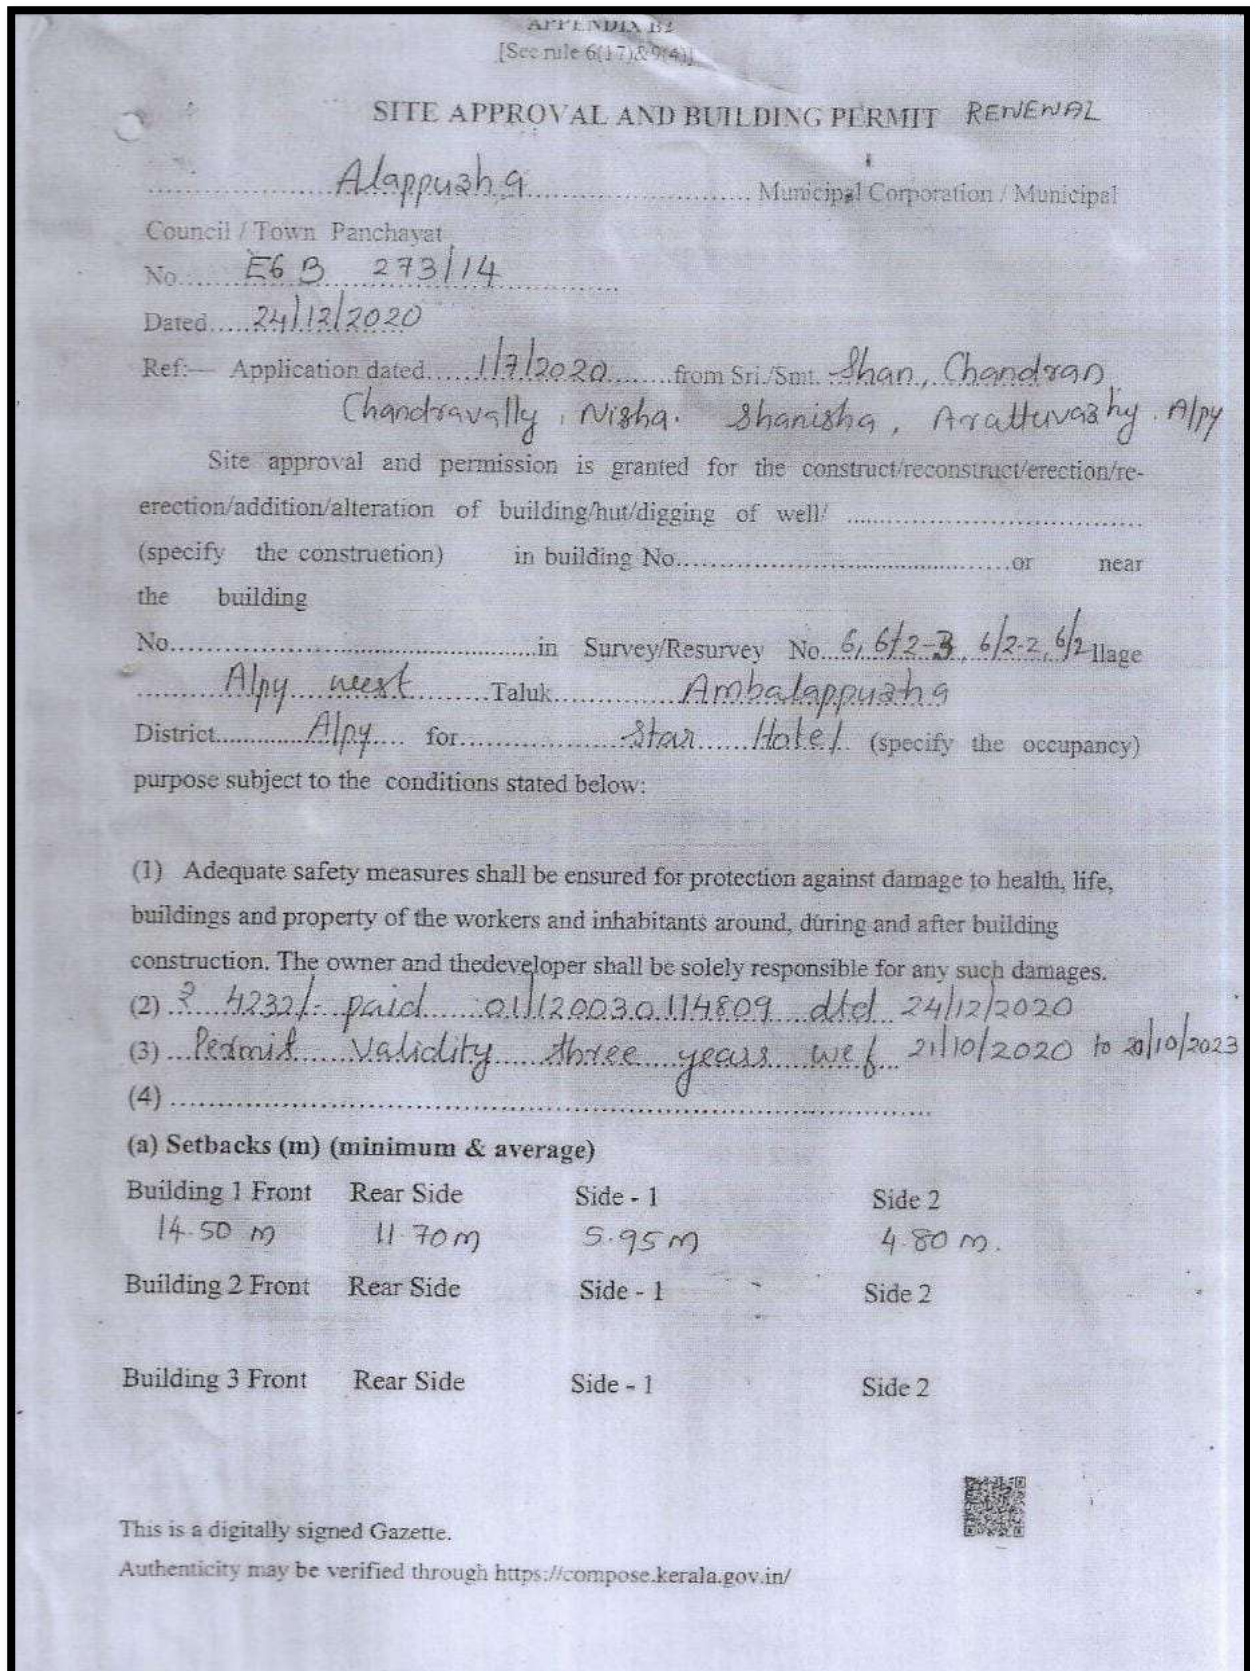 APPENDIX B2
[See rule 6(17)&9(4)]
SITE APPROVAL AND BUILDING PERMIT RENEWAL
....................Alappuzha........................ Municipal Corporation / Municipal
Council / Town Panchayat
No......E6 B 273/14..............
Dated.....24/12/2020
Ref:— Application dated......1/7/2020........from Sri./Smt. Shan, Chandran,
Chandravally, Nisha. Shanisha, Arattuvazhy. Alpy
Site approval and permission is granted for the construct/reconstruct/erection/re-
erection/addition/alteration of building/hut/digging of well/ ......................................
(specify the construetion) in building No...........................................or near
the building
No................................................in Survey/Resurvey No...6, 6/2-3, 6/2-2, 6/2 llage
..........Alpy west..........Taluk................Ambalappuzha
District............Alpy.... for....................Star Hotel. (specify the occupancy)
purpose subject to the conditions stated below:
(1) Adequate safety measures shall be ensured for protection against damage to health, life,
buildings and property of the workers and inhabitants around, during and after building
construction. The owner and thedeveloper shall be solely responsible for any such damages.
(2) ₹ 4232/- paid 01/120030114809 dtd 24/12/2020
(3) Permit Validity three years wef 21/10/2020 to 20/10/2023
(4) ....................................................................................................
(a) Setbacks (m) (minimum & average)
Building 1 Front Rear Side Side - 1 Side 2
14.50 m 11.70 m 5.95 m 4.80 m.
Building 2 Front Rear Side Side - 1 Side 2
Building 3 Front Rear Side Side - 1 Side 2
This is a digitally signed Gazette.
Authenticity may be verified through https://compose.kerala.gov.in/